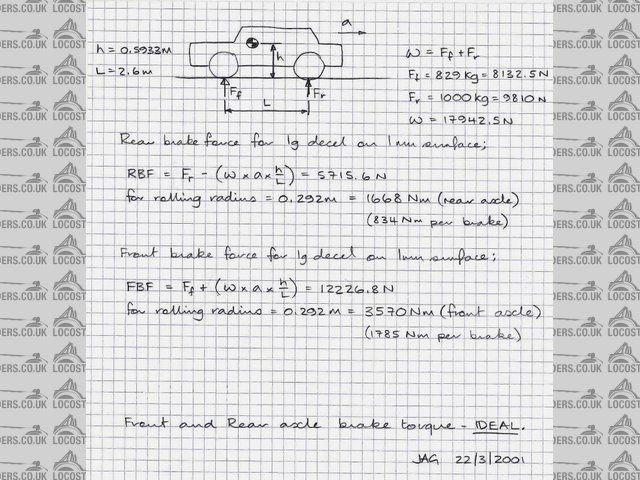 a
h = 0.5933M
L = 2.6m
h
Ff
Fr
L
W = Ff + Fr
Ff = 829 Kg = 8132.5N
Fr = 1000 Kg = 9810 N
W = 17942.5N
Rear brake force for 1g decel on 1mu surface;
RBF = Fr - (W × a × h/L) = 5715.6 N
for rolling radius = 0.292m = 1668 Nm (rear axle)
(834 Nm per brake)
Front brake force for 1g decel on 1mu surface;
FBF = Ff + (W × a × h/L) = 12226.8N
for rolling radius = 0.292m = 3570 Nm (front axle)
(1785 Nm per brake)
Front and Rear axle brake torque - IDEAL.
JAG 22/3/2001
LOCOSTBUILDERS.CO.UK